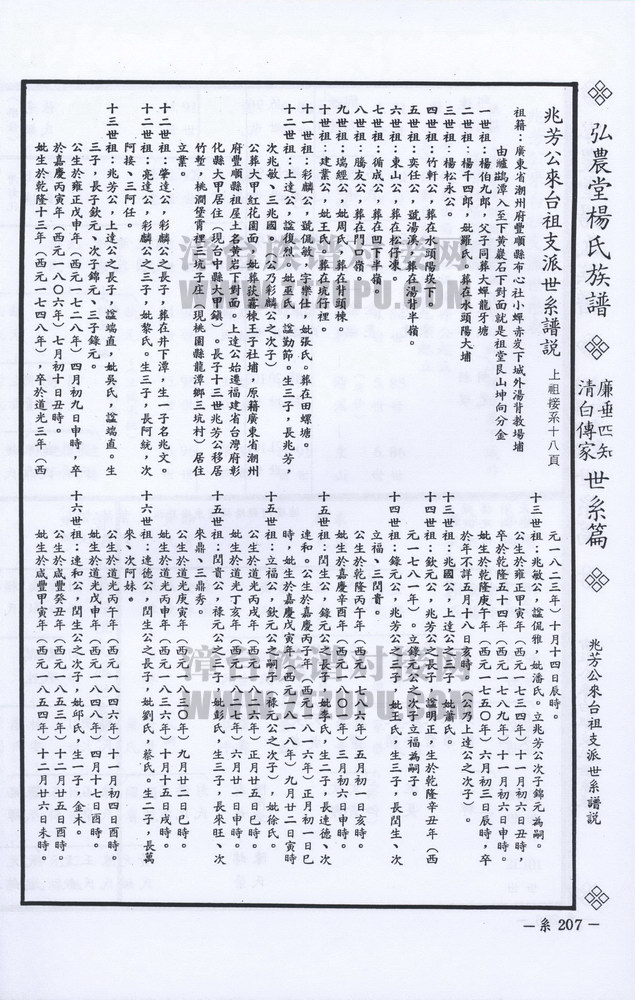 弘農堂楊氏族譜
廉垂四知
清白傳家
世系篇
兆芳公來台祖支派世系譜說
兆芳公來台祖支派世系譜說 上祖接系十八頁
祖籍：廣東省潮州府豐順縣布心社小蟬赤岌下城外湯背教場埔
由爐鷂潭入至下黃巖石下對面就是祖堂艮山坤向分金
一世祖：楊伯九郎，父子同葬大蟬龍牙塘
二世祖：楊千四郎，妣羅氏。葬在水頭陽大埔
三世祖：楊松永公。
四世祖：竹軒公，葬在水頭陽崁下
五世祖：奕任公，號湯溪，葬在湯背半嶺。
六世祖：東山公，葬在松仔凍。
七世祖：循成公，葬在凹下半嶺。
八世祖：騰友公，葬在門口嶺。
九世祖：瑞經公，妣周氏，葬在背頭棟。
十世祖：建業公，妣王氏，葬在坑仔裡。
十一世祖：彩麟公，號侃敏，字樂仕，妣張氏。葬在田螺塘。
十二世祖：上達公，諡復烈。妣巫氏，諡勤節。生三子，長兆芳，
次兆敏、三兆國。（公乃彩麟公之次子）
公葬大甲紅花園面，妣葬荻富棟王子社埔，原籍廣東省潮州
府豐順縣祖屋土名黃岩下對面。上達公始遷福建省台灣府彰
化縣大甲居住（現台中縣大甲鎮）。長子十三世兆芳公移居
竹塹，桃澗堡霄裡三坑子庄（現桃園縣龍潭鄉三坑村）居住
立業。
十二世祖：肇達公，彩麟公之長子，葬在井下潭，生一子名兆文。
十二世祖：亮達公，彩麟公之三子，妣黎氏。生三子，長阿統，次
阿接、三阿任。
十三世祖：兆芳公，上達公之長子，諡端直，妣吳氏，諡端直。生
三子，長子欽元、次子錦元、三子錄元。
公生於雍正戊申年（西元一七二八年）四月初九日申時，卒
於嘉慶丙寅年（西元一八０六年）七月初十日丑時。
妣生於乾隆十三年（西元一七四八年），卒於道光三年（西
元一八二三年）十月十四日辰時。
十三世祖：兆敏公，諡侃雅，妣潘氏。立兆芳公次子錦元為嗣。
公生於雍正甲寅年（西元一七三四年）十一月初六日丑時，
卒於乾隆五十四年（西元一七八九年）十一月初六日申時。
妣生於乾隆庚午年（西元一七五０年）六月初三日辰時，卒
於年不詳五月十八日亥時。（公乃上達公之次子）。
十三世祖：兆國公，上達公之三子，妣蕭氏。
十四世祖：欽元公，兆芳公之長子，諡明正，生於乾隆辛丑年（西
元一七八一年）。立錄元公之次子立福為嗣子。
十四世祖：錄元公，兆芳公之三子，妣王氏，生三子，長閃生、次
立福、三閏貴。
公生於乾隆丙午年（西元一七八六年）五月初一日亥時。
妣生於嘉慶辛酉年（西元一八０一年）三月初六日申時。
十五世祖：閃生公，錄元公之長子，妣李氏，生二子，長達德、次
達和。公生於嘉慶丙子年（西元一八一六年）正月初一日巳
時，妣生於嘉慶戊寅年（西元一八一八年）九月廿二日寅時
十五世祖：立福公，欽元公之嗣子（祿元公之次子），妣徐氏。
公生於道光丙戌年（西元一八二六年）正月廿五日巳時。
妣生於道光丁亥年（西元一八二七年）六月廿一日申時。
十五世祖：閏貴公，祿元公之三子，妣彭氏，生三子，長來旺、次
來鼎、三鼎秀。
公生於道光庚寅年（西元一八三０年）九月廿二日巳時。
妣生於道光丙申年（西元一八三六年）十月十五日戌時。
十六世祖：達德公，閃生公之長子，妣劉氏，蔡氏。生二子，長萬
來、次阿妹。
公生於道光丙午年（西元一八四六年）十一月初四日酉時。
妣生於道光戊申年（西元一八四八年）四月十七日酉時。
十六世祖：達和公，閃生公之次子，妣邱氏，生一子，金木。
公生於咸豐癸丑年（西元一八五三年）十二月廿五日酉時。
妣生於咸豐甲寅年（西元一八五四年）十二月廿六日未時。
－系 207－
漳台族谱对接网
WWW.ZTZUPU.COM
漳台族谱对接网
WWW.ZTZUPU.COM